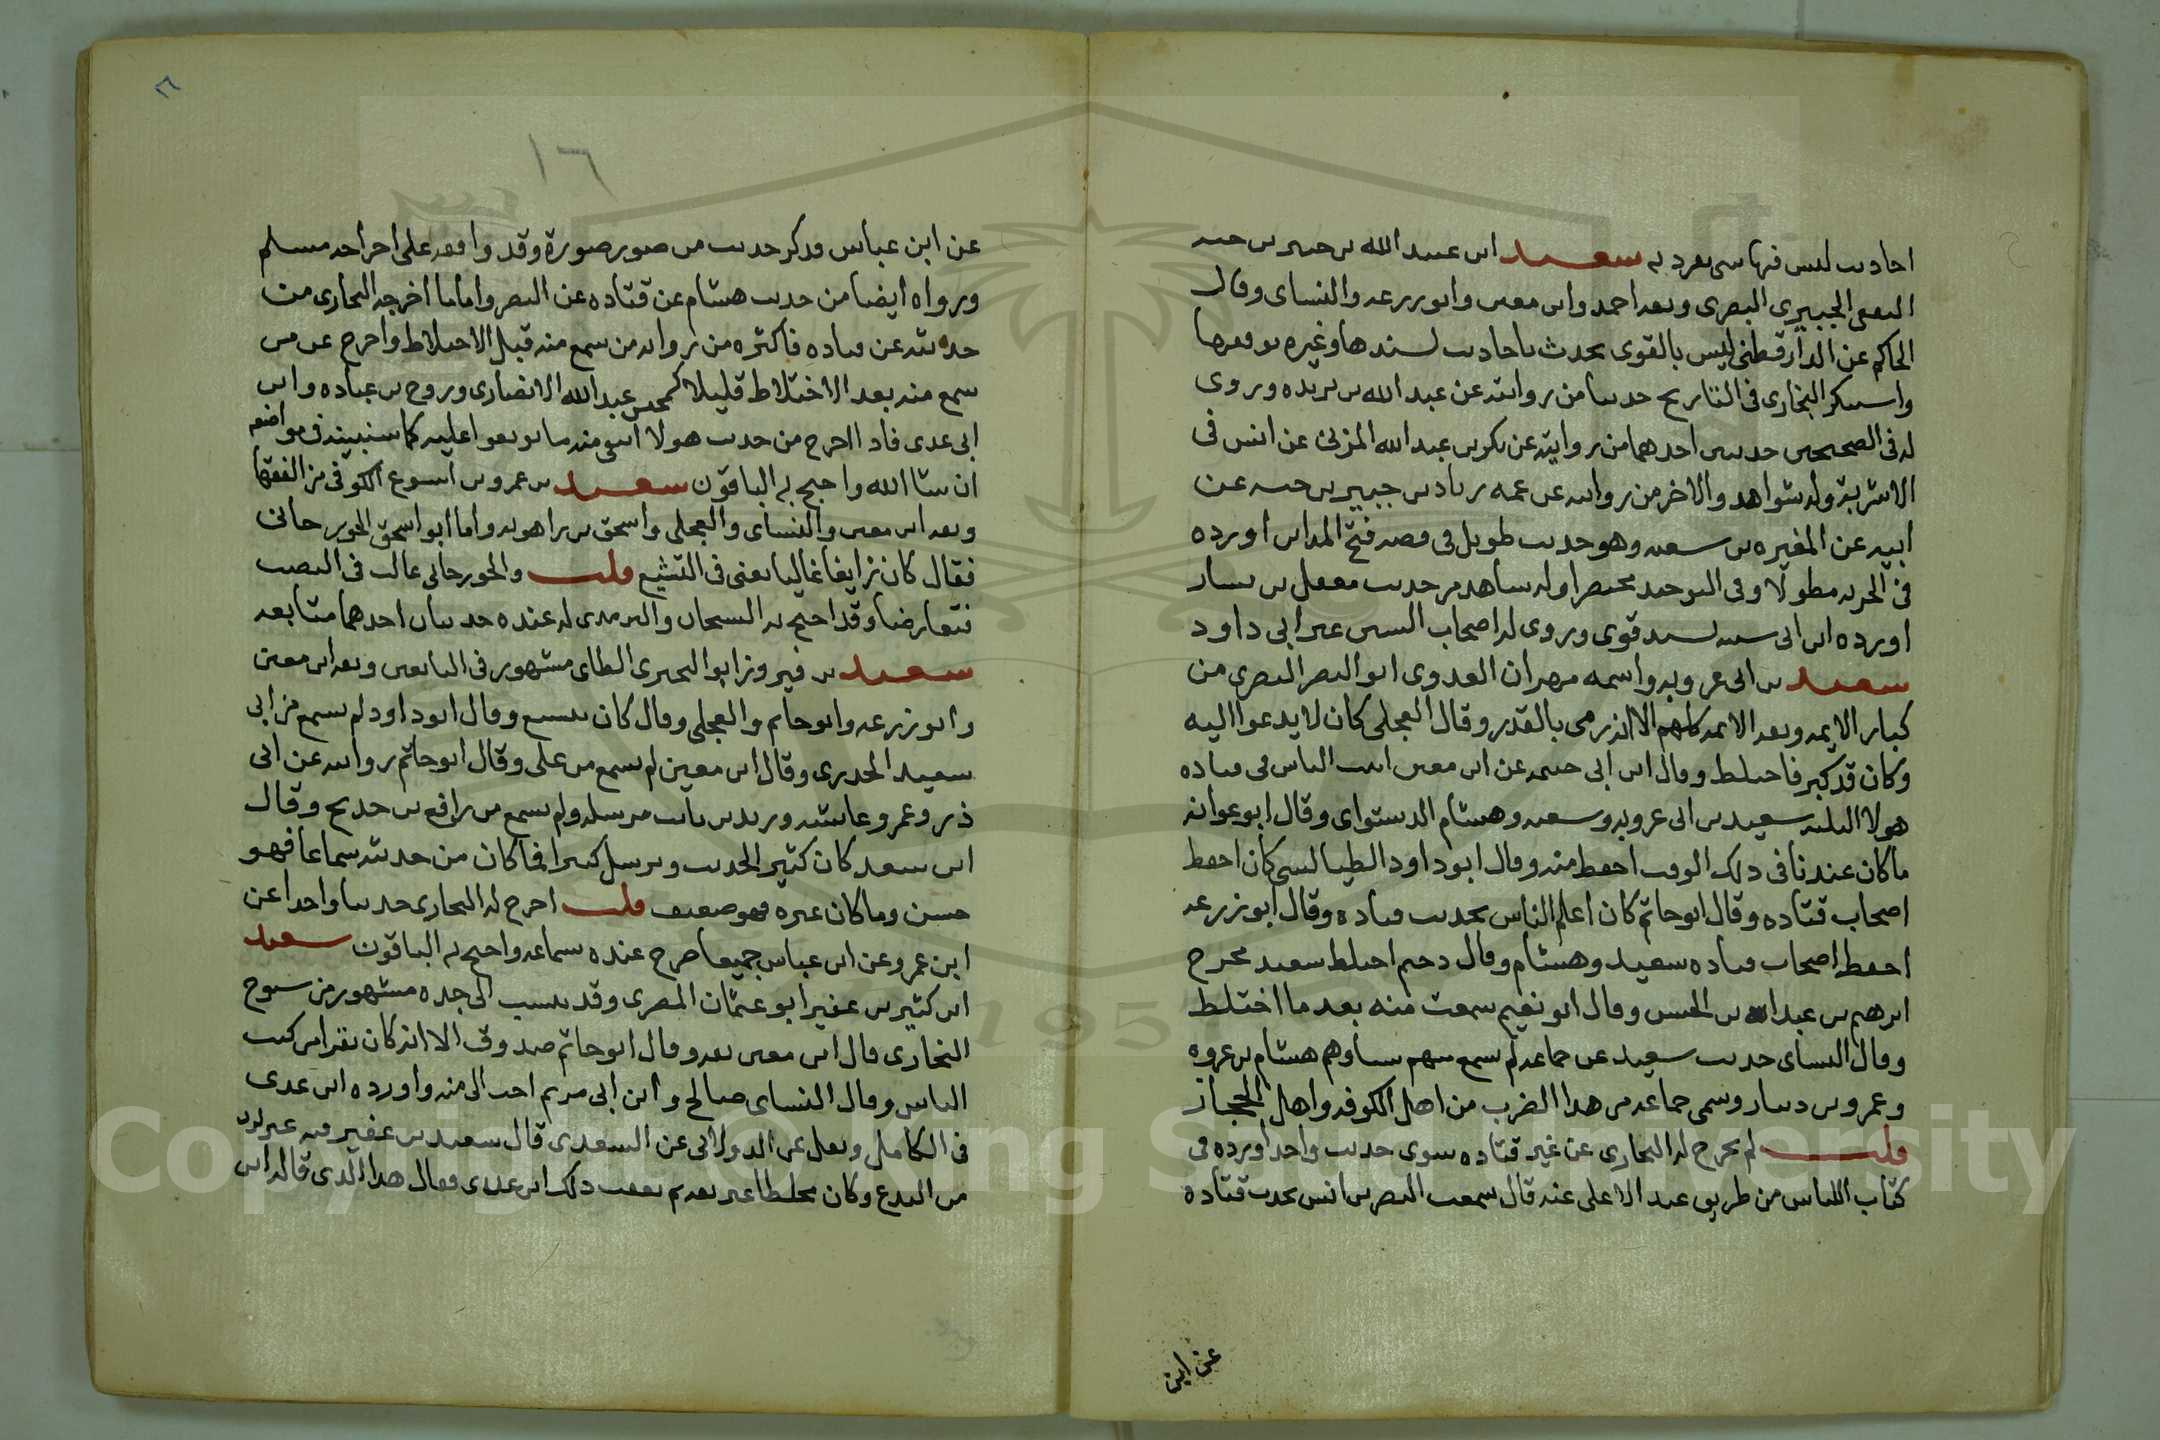 احاديث ليس فيها شى تفرد به سعيد ابن عبيد الله بن جبير بن حيه
الثقفى الجبيرى البصرى وثقه احمد وابن معين وابو زرعه والنساى وقال
الحاكم عن الدارقطنى ليس بالقوى يحدث باحاديث يسندها وغيره يوقفها
واستنكر البخارى فى التاريخ حديثا من روايته عن عبد الله بن بريده وروى
له فى الصحيحين حديثين احدهما من روايته عن بكر بن عبد الله المزنى عن انس فى
الاشربة وله شواهد والاخر من روايته عن عمه زياد بن جبير بن حيه عن
ابيه عن المغيره بن شعبه وهو حديث طويل فى قصه فتح المداين اورده
فى الجزيه مطولا وفى التوحيد مختصرا وله شاهد من حديث معقل بن يسار
اورده ابن ابى شيبه بسند قوى وروى له اصحاب السنن غير ابى داود
سعيد بن ابى عروبه واسمه مهران العدوى ابو النضر البصرى من
كبار الايمه وثقه الايمه كلهم الا انه رمى بالقدر وقال العجلى كان لا يدعوا اليه
وكان قد كبر فاختلط وقال ابن ابى خيثمه عن ابن معين اثبت الناس فى قتاده
هولا الثلثه سعيد بن ابى عروبه وشعبه وهشام الدستواى وقال ابو عوانه
ما كان عندنا فى ذلك الوقت احفظ منه وقال ابو داود الطيالسى كان احفظ
اصحاب قتاده وقال ابو حاتم كان اعلم الناس بحديث قتاده وقال ابو زرعه
احفظ اصحاب قتاده سعيد وهشام وقال دحيم اختلط سعيد مخرج
ابرهيم بن عبد الله بن الحسن وقال ابو نعيم سمعت منه بعد ما اختلط
وقال النساى حديث سعيد عن جماعه لم يسمع منهم شيا وهم هشام بن عروه
وعمرو بن دينار وسمى جماعه من هدا الضرب من اهل الكوفه واهل الحجاز
قلت لم يخرج له البخارى عن غير قتاده سوى حديث واحد اورده فى
كتاب اللباس من طريق عبد الاعلى عنه قال سمعت النضر بن انس يحدث قتاده
عن ابن
٢٦
١٦
عن ابن عباس فدكر حديث من صور صورة وقد وافقه على اخراجه مسلم
ورواه ايضا من حديث هشام عن قتاده عن النضر واما ما اخرجه البخارى من
حديثه عن قتاده فاكثره من روايه من سمع منه قبل الاختلاط واخرج عن من
سمع منه بعد الاختلاط قليلا كمحمد بن عبد الله الانصارى وروح بن عباده وابن
ابى عدى فاذا اخرج من حديث هولا انتقى منه ما توبعوا عليه كما سنبينه فى مواضعه
ان شا الله واحتج به الباقون سعيد بن عمرو بن اشوع الكوفى من الفقها
وثقه ابن معين والنساى والعجلى واسحق بن راهويه واما ابو اسحق الجورجانى
فقال كان زايغا غاليا يعنى فى التشيع قلت والجورجانى غال فى النصب
فتعارضا وقد احتج به الشيخان والترمدى له عنده حديثان احدهما متابعه
سعيد بن فيروز ابو البخترى الطاى مشهور فى التابعين وثقه ابن معين
وابو زرعه وابو حاتم والعجلى وقال كان يتشيع وقال ابو داود لم يسمع من ابى
سعيد الخدرى وقال ابن معين لم يسمع من على وقال ابو حاتم روايته عن ابى
ذر وعمر وعايشه وزيد بن ثابت مرسله ولم يسمع من رافع بن خديج وقال
ابن سعد كان كثير الحديث ويرسل كثيرا فما كان من حديثه سماعا فهو
حسن وما كان غيره فهو ضعيف قلت اخرج له البخارى حديثا واحدا عن
ابن عمر وعن ابن عباس جميعا صرح عنده بسماعه واحتج به الباقون سعيد
ابن كثير بن عفير ابو عثمان المصرى وقد ينسب الى جده مشهور من شيوخ
البخارى قال ابن معين ثقه وقال ابو حاتم صدوق الا انه كان يقرا من كتب
الناس وقال النساى صالح وابن ابى مريم احب الى منه واورده ابن عدى
فى الكامل ونقل عن الدولابى عن السعدى قال سعيد بن عفير فيه غير لون
من البدع وكان مخلطا غير ثقه ثم تعقب ذلك ابن عدى فقال هدا الذى قاله ابن